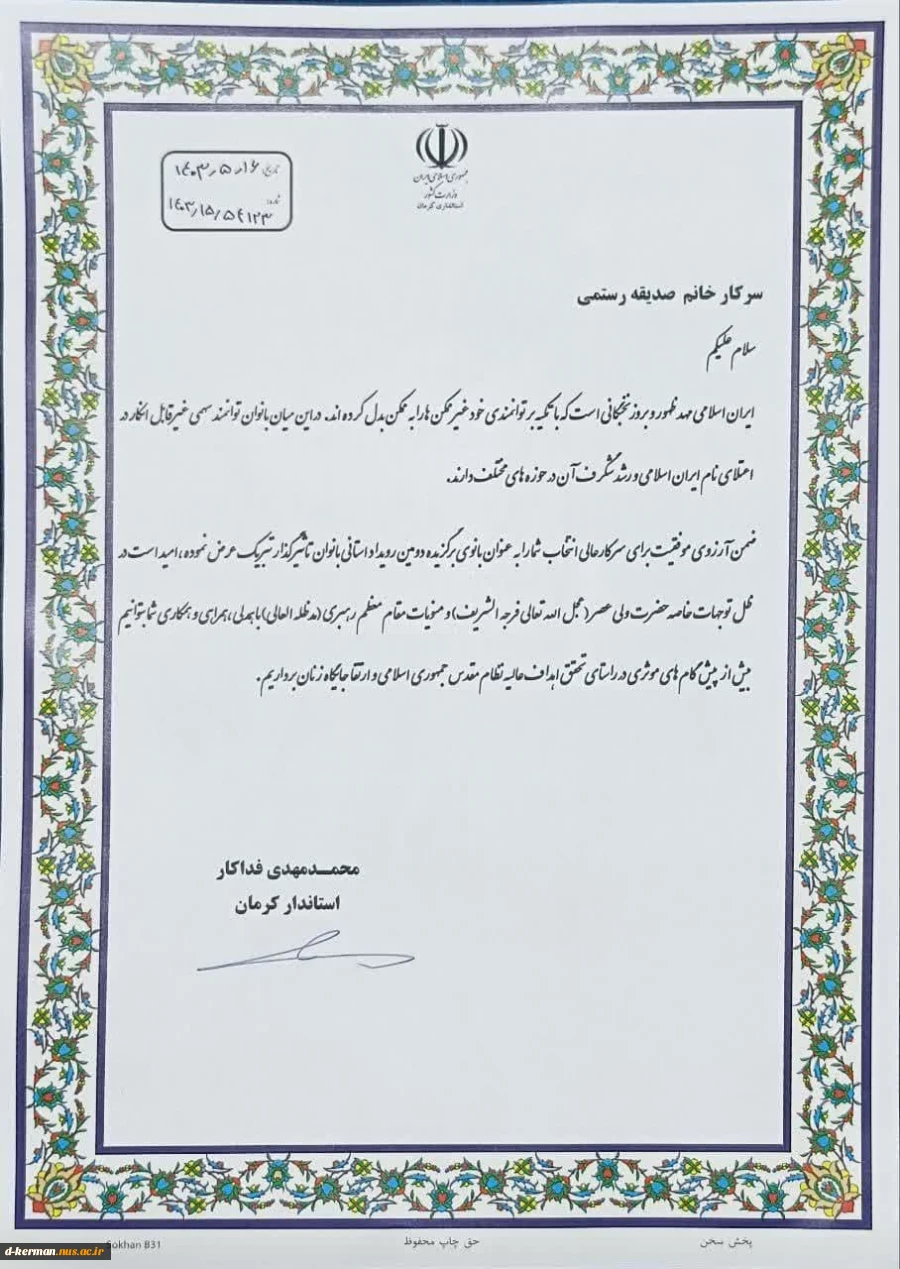 جمهوری اسلامی ایران
وزارت کشور
استانداری کرمان
تاریخ: ۱۴۰۳٫۵٫۱۶
شماره: ۱۴۰۳٫۱۵٫۵۴۱۲۳
سرکار خانم صدیقه رستمی
سلام علیکم
ایران اسلامی مهد ظهور و بروز نخبگانی است که با تکیه بر توانمندی خود غیرممکن ها را به ممکن بدل کرده اند. در این میان بانوان توانمند سهمی غیرقابل انکار در
اعتلای نام ایران اسلامی و رشد شگرف آن در حوزه های مختلف دارند.
ضمن آرزوی موفقیت برای سرکار عالی انتخاب شما را به عنوان بانوی برگزیده دومین رویداد استانی بانوان تاثیرگذار تبریک عرض نموده، امید است در
ظل توجهات خاصه حضرت ولی عصر (عجل الله تعالی فرجه الشریف) و منویات مقام معظم رهبری (مدظله العالی) با همدلی، همراهی و همکاری شما بتوانیم
بیش از پیش گام های موثری در راستای تحقق اهداف عالیه نظام مقدس جمهوری اسلامی و ارتقا جایگاه زنان برداریم.
محمدمهدی فداکار
استاندار کرمان
پخش سخن
حق چاپ محفوظ
Sokhan B31
d-kerman.nus.ac.ir